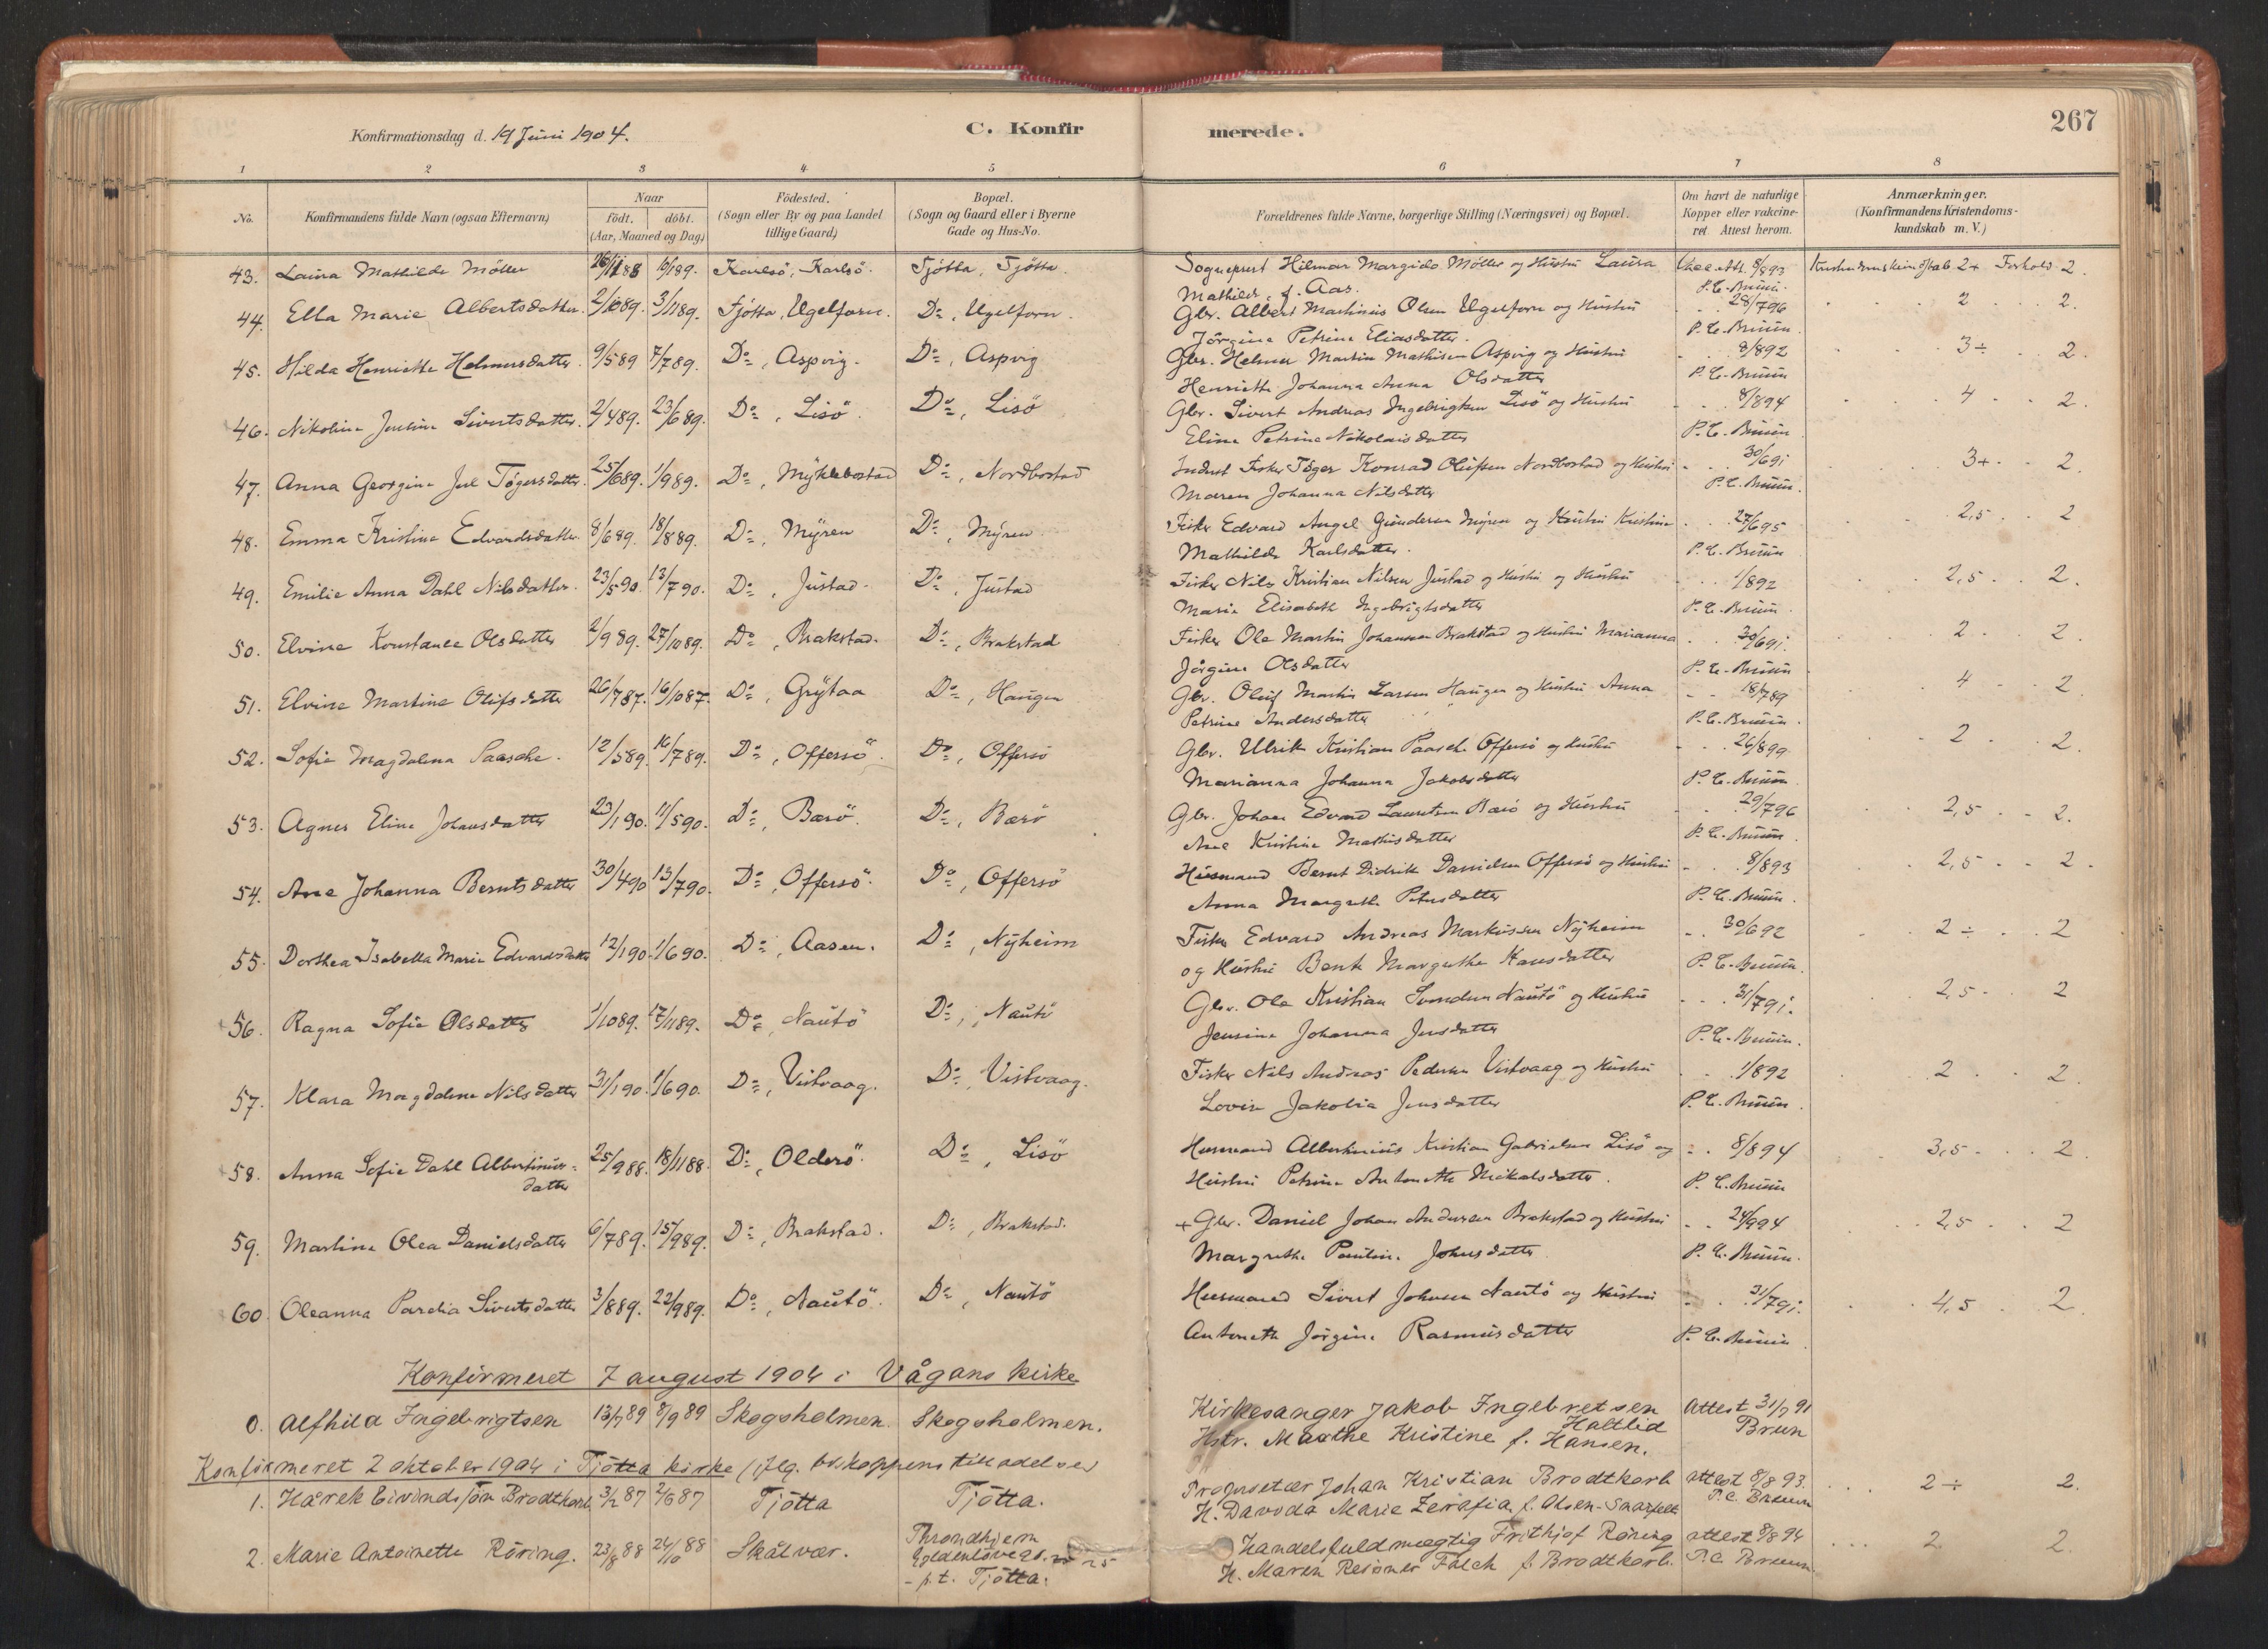 Konfirmationsdag d. 19 Juni 1904.
C. Konfirmerede.
267
1 2 3 4 5 6 7 8
No. Konfirmandens fulde Navn (ogsaa Efternavn) Naar født. døbt. (Aar, Maaned og Dag.) Fødested. (Sogn eller By og paa Landet tillige Gaard) Bopæl. (Sogn og Gaard eller i Byerne Gade og Hus-No. Forældrenes fulde Navne, borgerlige Stilling (Næringsvei) og Bopæl. Om havt de naturlige Kopper eller vakcineret. Attest herom. Anmærkninger. (Konfirmandens Kristendomskundskab m. V.)
43. Laura Mathilde Möller 26/11 88 6/1 89. Karlsö, Karlsö. Tjötta, Tjötta. Sogneprest Hilmar Margido Möller og Hustru Laura 8/8 93 Kristendomskundskab 2+ Forhold 2.
Mathilde, f. Aas. P. C. Bruun.
44. Ella Marie Albertsdatter. 2/10 89. 3/11 89. Tjötta, Ugelforn. Do, Ugelforn. Gbr. Albert Martinius Olsen Ugelforn og Hustru 28/7 96 2 2.
Jörgine Petrine Eliasdatter. P. C. Bruun.
45. Hilda Henriette Helmersdatter. 9/5 89 7/7 89. Do, Aspvig. Do, Aspvig Gbr. Helmer Martin Mathisen Aspvig og Hustru 8/8 92 3÷ 2.
Henriette Johanna Anna Olsdatter P. C. Bruun
46. Nikoline Jensine Sivertsdatter. 2/4 89. 23/6 89. Do, Lisö. Do, Lisö Gbr. Sivert Andreas Ingebrigtsen Lisö og Hustru 8/8 94 4 2.
Eline Petrine Nikolaisdatter P. C. Bruun
47. Anna Georgine Juel Tögersdatter. 25/6 89. 1/9 89. Do, Myklebostad Do, Nordbostad Inderst Fisker Töger Konrad Olufsen Nordbostad og Hustru 30/6 91 3+ 2.
Maren Johanna Nilsdatter P. C. Bruun.
48. Emma Kristine Edvardsdatter. 8/6 89. 18/8 89. Do, Myren Do, Myren Fisker Edvard Angel Gundersen Myren og Hustru Kristine 27/6 95 2,5 2
Mathilde Karlsdatter. P. C. Bruun
49. Emilie Anna Dahl Nilsdatter. 23/5 90. 13/7 90. Do, Justad. Do, Justad Fisker Nils Kristian Nilsen Justad og Hustru og Hustru 1/8 92 2,5 2.
Marie Elisabeth Ingebrigtsdatter P. C. Bruun.
50. Elvine Konstanse Olsdatter 2/9 89. 27/10 89. Do, Brakstad. Do, Brakstad Fisker Ole Martin Johansen Brakstad og Hustru Marianna 30/6 91. 2 2.
Jörgine Olsdatter P. C. Bruun
51. Elvine Martine Olufsdatter 26/7 87. 16/10 87. Do, Grytaa Do, Haugen Gbr. Oluf Martin Larsen Haugen og Hustru Anna 18/7 89 4 2.
Petrine Andersdatter P. C. Bruun.
52. Sofie Magdalena Paasche. 12/5 89. 14/7 89. Do, Offersö. Do, Offersö Gbr. Ulrik Kristian Paasche Offersö og Hustru 26/8 99. 2 2.
Marianna Johanna Jakobsdatter P. C. Bruun
53. Agnes Eline Johansdatter 23/1 90. 11/5 90. Do, Bærö. Do, Bærö Gbr. Johan Edvard Lauritsen Bærö og Hustru 29/7 96 2,5 2.
Ane Kristine Mathisdatter P. C. Bruun.
54. Ane Johanna Berntsdatter 30/4 90 13/7 90. Do, Offersö. Do, Offersö Husmand Bernt Didrik Danielsen Offersö og Hustru 8/8 93 2,5 2.
Anna Margrethe Petersdatter P. C. Bruun.
55. Dorthea Isabella Marie Edvardsdatter 12/1 90. 1/6 90. Do, Aasen. Do, Nyheim Fisker Edvard Andreas Markussen Nyheim 30/6 92 2÷ 2
og Hustru Berit Margrethe Hansdatter P. C. Bruun.
56. Ragna Sofie Olsdatter 1/10 89. 17/11 89. Do, Nautö Do, Nautö Gbr. Ole Kristian Svendsen Nautö og Hustru 31/7 91. 2,5 2
Jensine Johanna Jensdatter P. C. Bruun.
57. Klara Magdalene Nilsdatter 31/1 90. 1/6 90. Do, Vistvaag. Do, Vistvaag. Fisker Nils Andreas Pedersen Vistvaag og Hustru 1/8 92 2 2.
Lovise Jakobia Jensdatter P. C. Bruun.
58. Anna Sofie Dahl Albertinius-datter 25/9 88. 18/11 88. Do, Olderö. Do, Lisö Husmand Albertinius Kristian Gabrielsen Lisö og 8/8 94 3,5 2.
Hustru Petrine Antonette Mikalsdatter. P. C. Bruun
59. Martine Olea Danielsdatter 6/7 89. 15/9 89. Do, Brakstad. Do, Brakstad. + Gbr. Daniel Johan Andersen Brakstad og Hustru 24/9 94 2,5 2
Margrethe Pauline Johnsdatter P. C. Bruun.
60. Oleanna Parelia Sivertsdatter 3/8 89. 22/9 89. Do, Nautö. Do, Nautö Husmand Sivert Johnsen Nautö og Hustru 31/7 91. 4,5 2.
Antonette Jörgine Rasmusdatter P. C. Bruun
Konfirmeret 7 august 1904 i Vågans kirke
0. Alfhild Ingebrigtsen 13/7 89 8/9 89 Skogsholmen. Skogsholmen. Kirkesanger Jakob Ingebretsen Haltlid Attest 31/7 91
Hstr. Marthe Kristine f. Hansen. Bruun
Konfirmeret 2 oktober 1904 i Tjötta kirke (iflg. biskoppens tilladelse)
1. Hårek Eivindssön Brodtkorb 3/2 87 2/6 87 Tjötta Tjötta. Proprietær Johan Kristian Brodtkorb attest 8/8 93. 2÷ 2.
H. Davida Marie Zerafia f. Olsen- P. C. Bruun
2. Marie Antoinette Röring. 23/8 88 24/10 88 Skålvær. Throndhjem - p.t. Tjötta. Handelsfuldmægtig Frithjof Röring attest 8/8 94 2 2.
H. Maren Falch f. Brodtkorb. P. C. Bruun